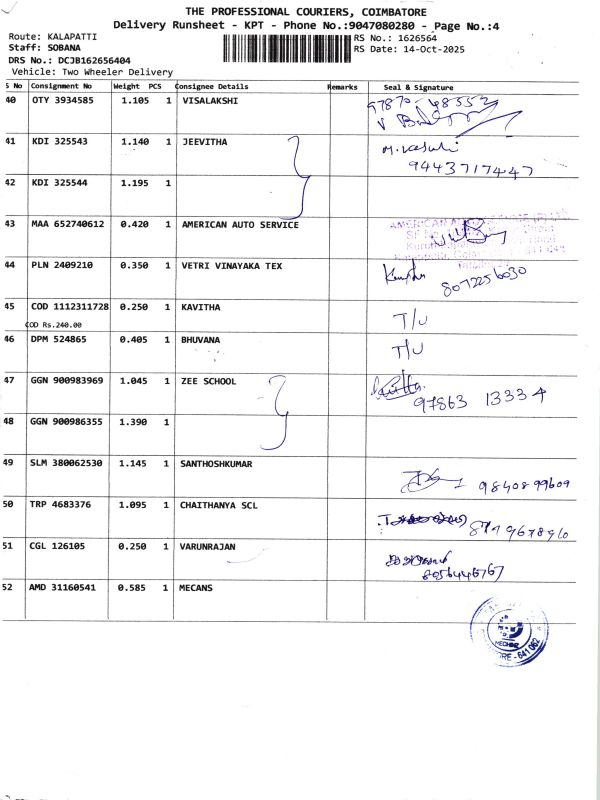 THE PROFESSIONAL COURIERS, COIMBATORE
Delivery Runsheet - KPT - Phone No.:9047080280 - Page No.:4
Route: KALAPATTI RS No.: 1626564
Staff: SOBANA RS Date: 14-Oct-2025
DRS No.: DCJB162656404
Vehicle: Two Wheeler Delivery
S No Consignment No Weight PCS Consignee Details Remarks Seal & Signature
40 OTY 3934585 1.105 1 VISALAKSHI 97870-48552
41 KDI 325543 1.140 1 JEEVITHA
9443717447
42 KDI 325544 1.195 1
43 MAA 652740612 0.420 1 AMERICAN AUTO SERVICE
44 PLN 2409210 0.350 1 VETRI VINAYAKA TEX
8072256030
45 COD 1112311728 0.250 1 KAVITHA T/U
COD Rs.240.00
46 DPM 524865 0.405 1 BHUVANA T/U
47 GGN 900983969 1.045 1 ZEE SCHOOL
97863 13334
48 GGN 900986355 1.390 1
49 SLM 380062530 1.145 1 SANTHOSHKUMAR
9840899609
50 TRP 4683376 1.095 1 CHAITHANYA SCL
51 CGL 126105 0.250 1 VARUNRAJAN
52 AMD 31160541 0.585 1 MECANS